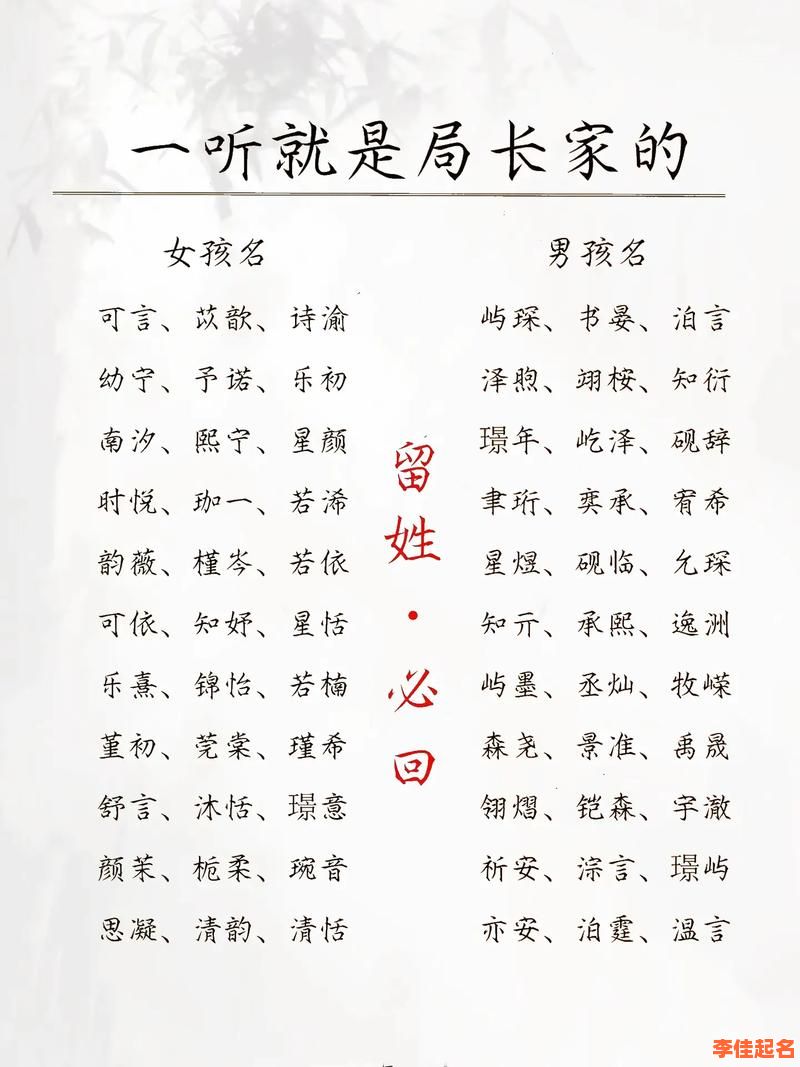 一听就是局长家的
女孩名
可言、苡歆、诗渝
幼宁、予诺、乐初
南汐、熙宁、星颜
时悦、珈一、若浠
韵薇、槿岑、若依
可依、知妤、星恬
乐熹、锦怡、若楠
堇初、莞棠、瑾希
舒言、沐恬、璟意
颜茉、栀柔、琬音
思凝、清韵、清恬
留姓·必回
男孩名
屿琛、书晏、泊言
泽煦、翊桉、知衍
璟年、屹泽、砚辞
聿珩、奕承、宥希
星煜、砚临、允琛
知亓、承熙、逸洲
屿墨、丞灿、牧嵘
森尧、景准、禹晟
翎熠、铠森、宇澈
祈安、淙言、璟屿
亦安、泊霆、温言
李佳起名